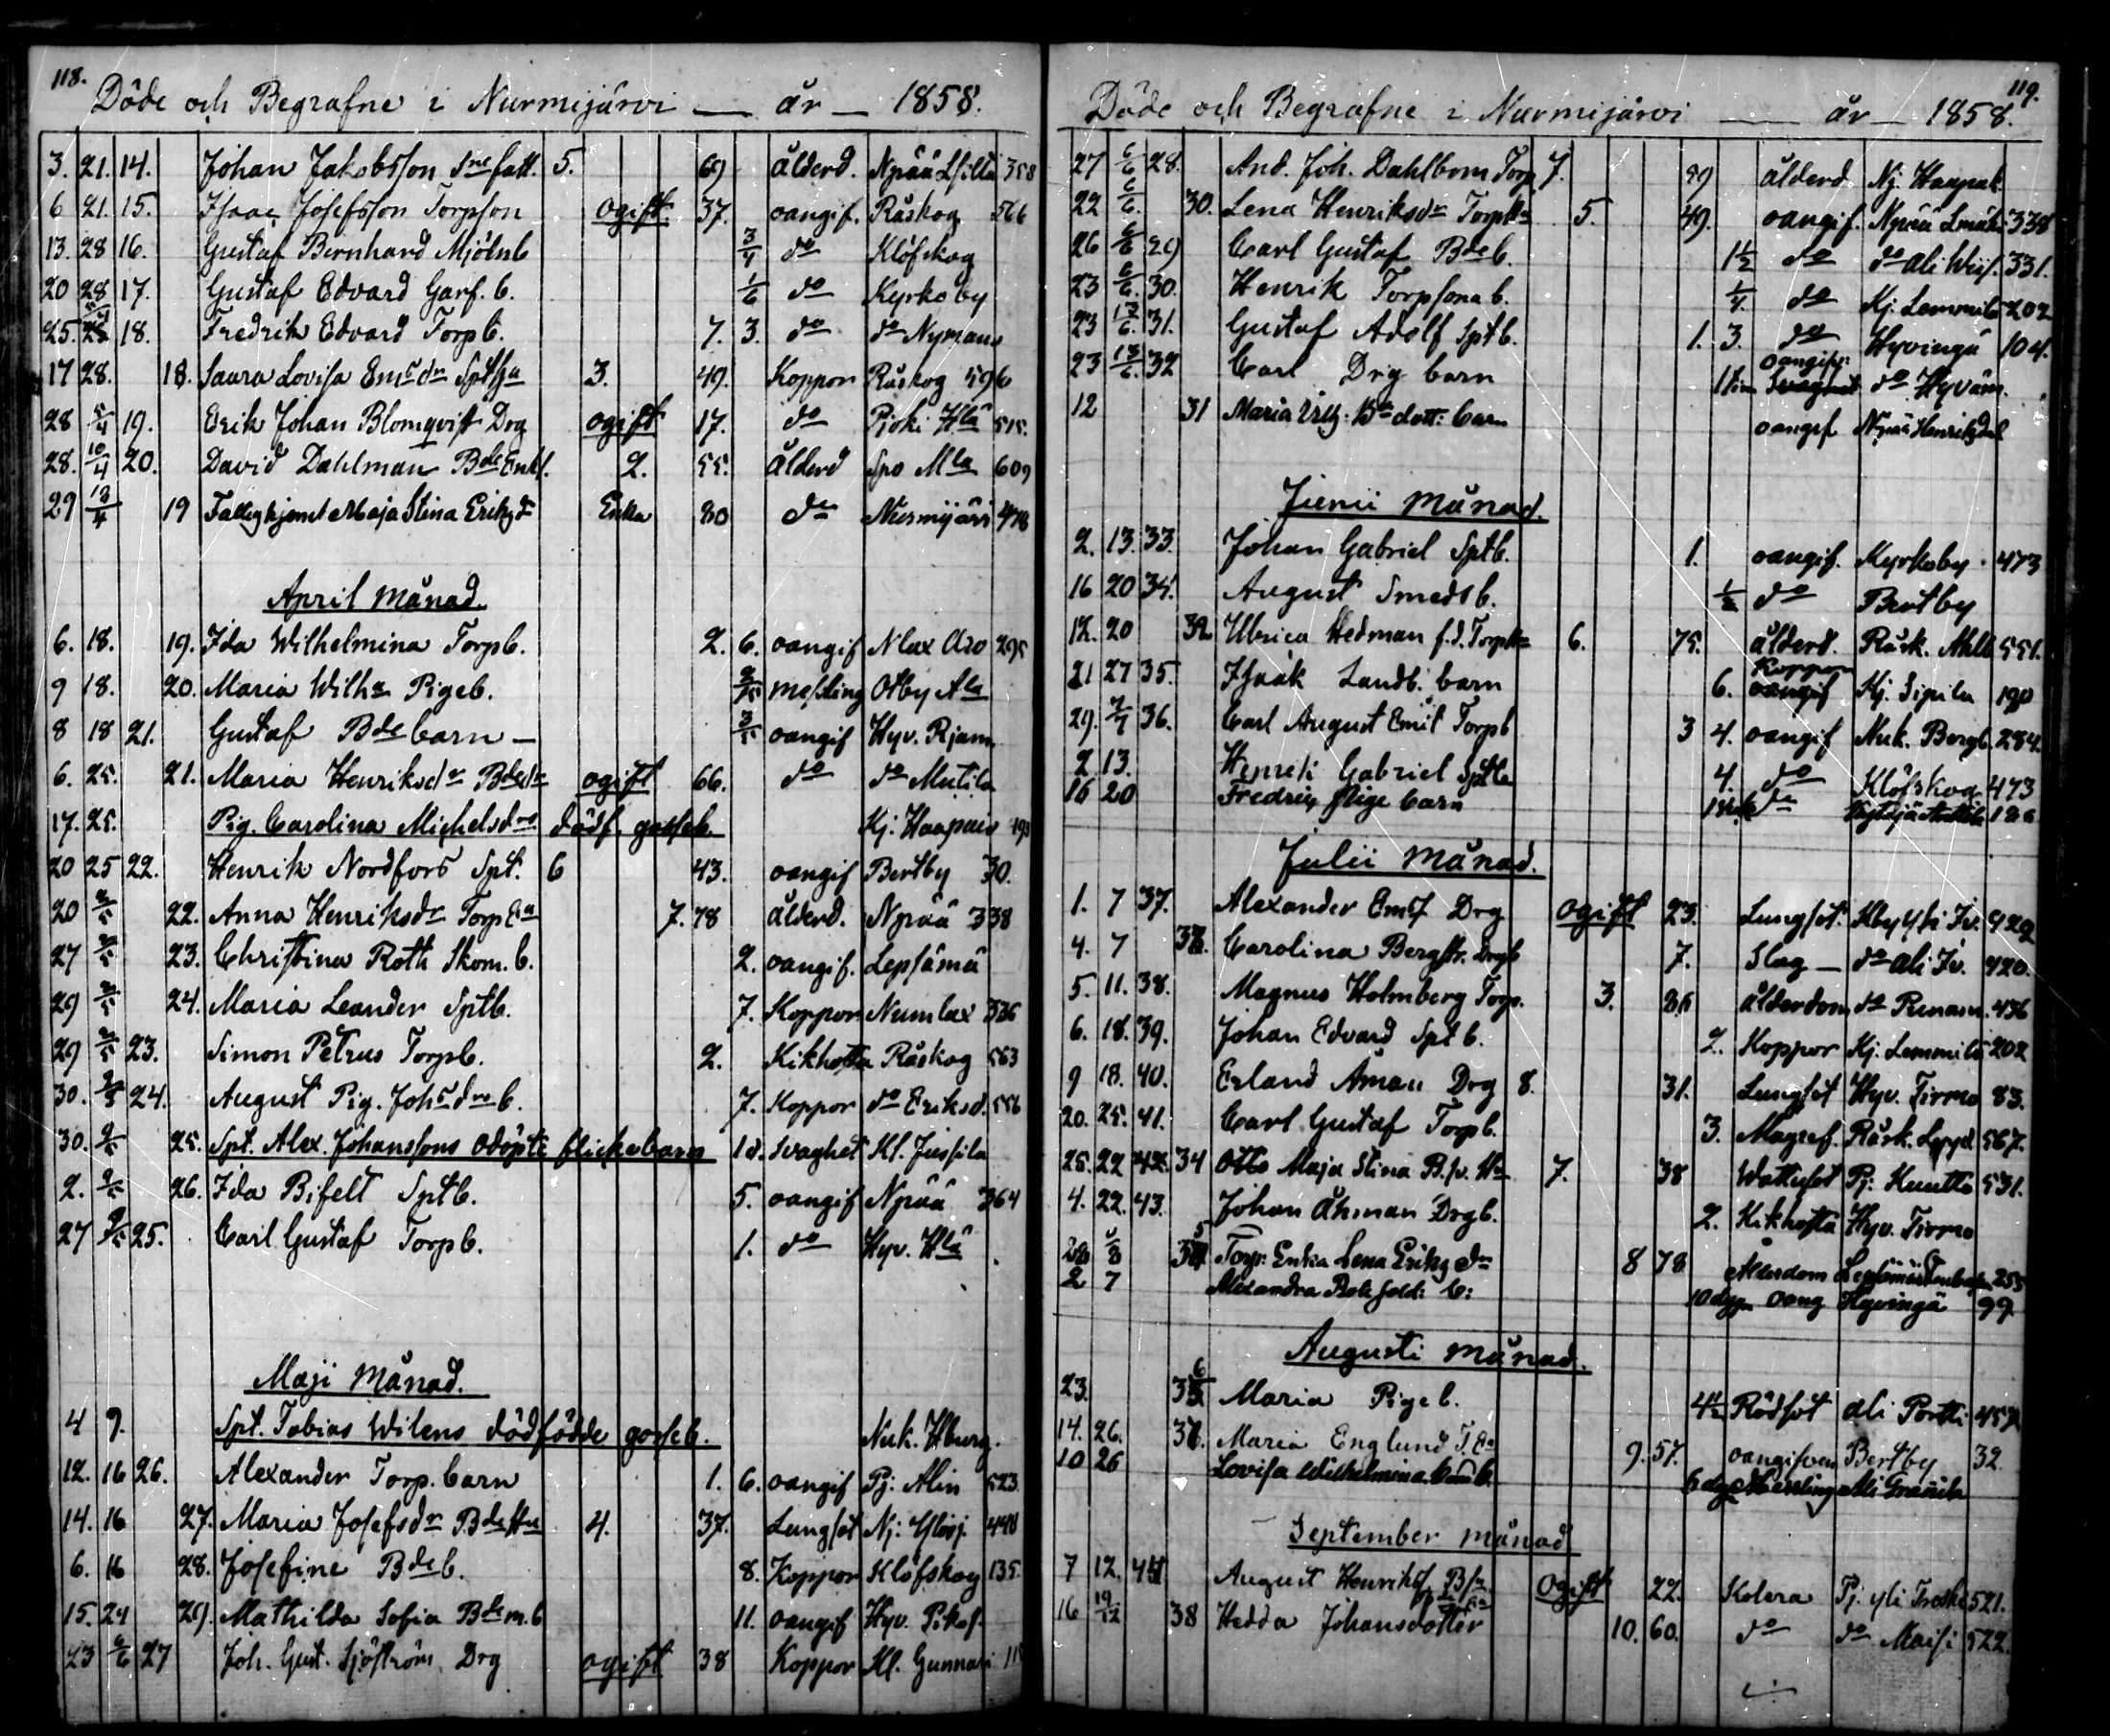 118.
Döde och Begrafne i Nurmijärvi — år — 1858.
3. 21. 14. Johan Jakobsson Sne fatt. 5. 69 ålderd. Npää 358
6 21. 15. Isaac Josefsson Torpson ogift. 37. oangif. Råskog 566
13. 28 16. Gustaf Bernhard Mjölnb 3/4 do Klöfskog
20 28 17. Gustaf Edvard Garf. b. 1/6 do Kyrkoby
25. 18. Fredrik Edvard Torpb. 7. 3. do do Nymans
17 28. 18. Saara Lovisa Emsdr 3. 49. Koppor Råskog 596
28 5/4 19. Erik Johan Blomqvist Drg ogift 17. do Pjoki Hlä 515.
28. 10/4 20. David Dahlman Bde Enkl. 2. 55. ålderd Spo Mla 609
29 12/4 19 Fattighjonet Maja Stina Eriksdr Enka 80 do Nurmijärvi 478
April Månad.
6. 18. 19. Ida Wilhelmina Torpb. 2. 6. oangif Nlax Aro 295
9 18. 20. Maria Wilha Pigeb. 2/15 messling Otby Ala
8 18 21. Gustaf Bde barn — oangif Hyv. Rjam.
6. 25. 21. Maria Henriksdr Bdedr ogift 66. do do Mutila
17. 25. Pig. Carolina Michelsdrs dödf. gosseb. Kj. Haapais 193
20 25 22. Henrik Nordfors Spt. 6 43. oangif Bertby 30.
20 2/5 22. Anna Henriksdr Torpka 7. 78 ålderd. Npää 338
27 2/5 23. Christina Roth Skom. b. 2. oangif. Lepsämä
29 2/5 24. Maria Leander Sptb. 7. Koppor Numlax 336
29 2/5 23. Simon Petrus Torpb. 2. Kikhosta Råskog 563
30. 24. August Pig. Johsdrs b. 7. Koppor do Eriksd. 556
30. 2/5 25. Spt. Alex. Johanssons odöpte flickebarn 1d. svaghet Kl. Jussila
2. 9/5 26. Ida Bifelt Sptb. 5. oangif Npää 364
27 9/5 25. Carl Gustaf Torpb. 1. do Hyv. Hlä
Maji Månad.
4 9. Spt. Tobias Wilens dödfödde gosseb. Nuk. Hburg.
12. 16 26. Alexander Torp. barn 1. 6. oangif Pj. Alin 523.
14. 16 27. Maria Josefsdr Bdehu 4. 37. Lungsot Nj. Yliöj. 448
6. 16 28. Josefine Bdeb. 8. Koppor Klöfskog 135.
15. 24 29. Mathilda Sofia Bdem. b 11. oangif Hyv. Pikof.
23 6/6 27 Joh. Gust. Sjöström Drg ogift 38 Koppor Kl. Gunnari
119.
Döde och Begrafne i Nurmijärvi — år — 1858.
27 6/6 28. And. Joh. Dahlbom Torp 7. ålderd Nj. Haapak.
22 6/6. 30. Lena Henriksdr Torpka 5. 49. oangif. Npää 338
26 6/6 29 Carl Gustaf Bdeb. 1 1/2 do do 331.
23 6/6. 30. Henrik Torpsons b. do Kj. Lemmila 202
23 13/6. 31. Gustaf Adolf Sptb. 1. 3. do Hyvingä 104.
23 13/6. 32 Carl Drg barn oangif. do Hyväm.
12 31 Maria Ulrz: Bde dott: barn oangif Npää Henriksdal
Junii Månad.
2. 13. 33. Johan Gabriel Sptb. 1. oangif. Kyrkoby 473
16 20 34. August Smedsb. 1/2 do Bertby
12. 20 32 Ulrica Hedman f.d. Torpka 6. 75. ålderd. Råsk. Ahlb 551.
21 27 35. Isaak Landb. barn 6. Koppor Kj. Sipila 190
29. 4/7 36. Carl August Emil Torpb 3 4. oangif Nuk. Bergb. 284.
2 13. Henrik Gabriel Sptb 4. do Klöfskog 473
16 20 Fredrik Pige barn do
Julii Månad.
1. 7 37. Alexander Emsf Drg ogift 23. Lungsot. 429
4. 7 Carolina Bergstr. Drgb 7. Slag — do ali Iv. 420.
5. 11. 38. Magnus Holmberg Torp. 3. 86 ålderdom do 436
6. 18. 39. Johan Edvard Spt b. 2. Koppor Kj. Lemmilä 202
9 18. 40. Erland Åman Drg 8. 31. Lungsot Hyv. Tirmo 83.
20. 25. 41. Carl Gustaf Torpb. 3. Magref. Råsk. 567.
25. 22 34 Maja Stina 7. 38 Wattusot Pj. Knuttu 531.
4. 22. 43. Johan Åhman Drgb. 2. Kikhosta Hyv. Tirmo
Torp. Enka Lena Eriksdr 8 78 ålderdom Lepsämä 253
2 7 Alexandra b: 10 dgr oang Hyvingä 99
Augusti Månad.
23. Maria Pigeb. Rödsot ali Pertti 457
14. 26. 37. Maria Englund 9. 57. oangifven Bertby 32
10 26 Lovisa Wilhelmina 6 dgr Messling
September Månad
7 12. August Henriksf ogift 22. Kolera Pj. yli 521.
16 19/12 38 Hedda Johansdotter 10. 60. do do Maisi 522.